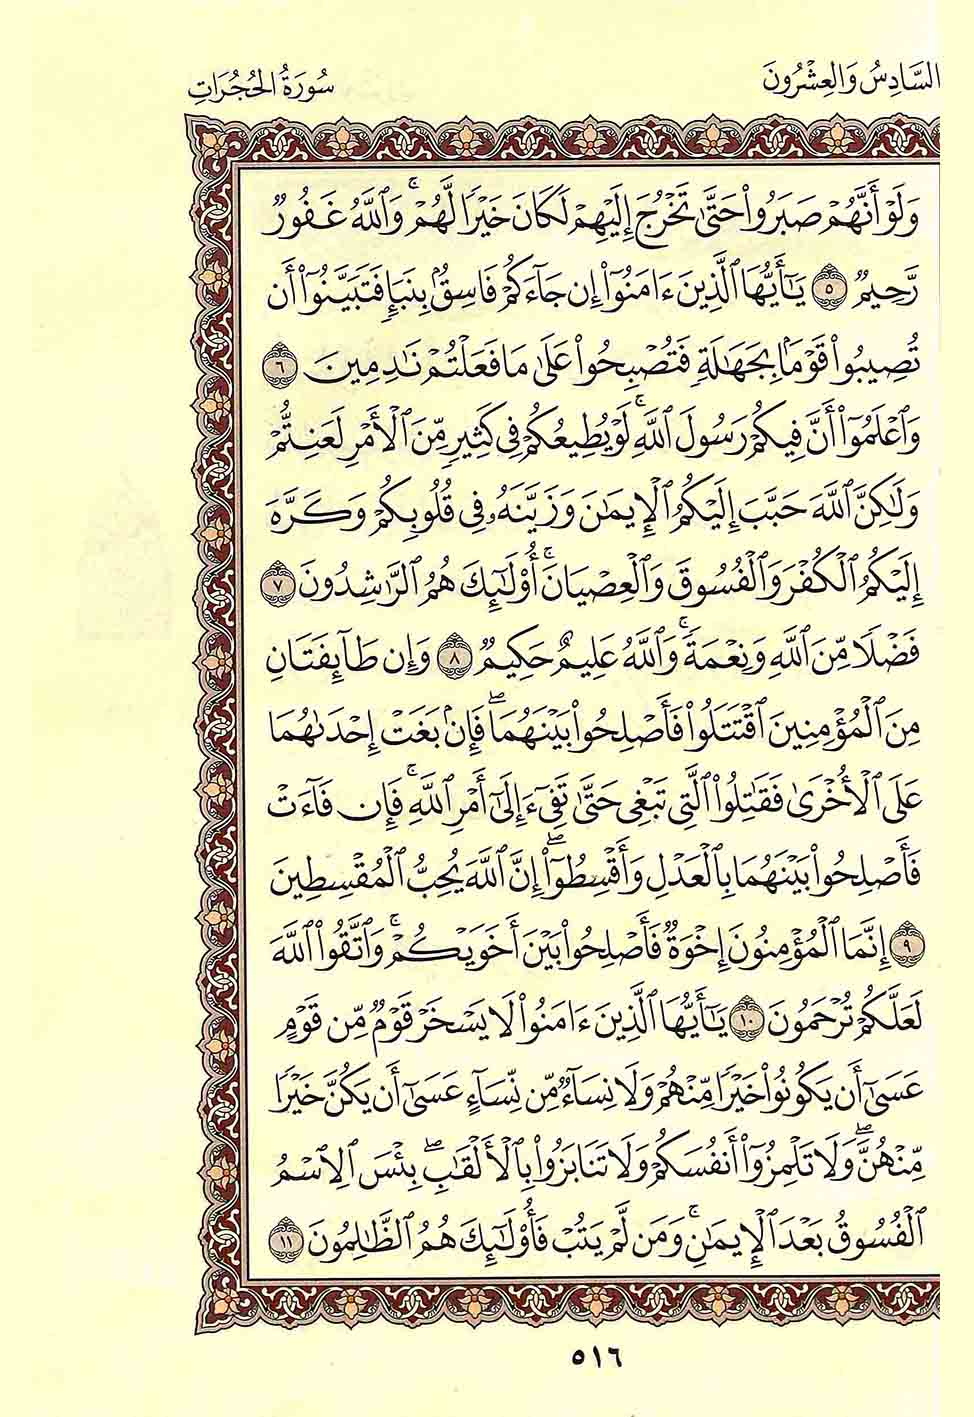 السَّادِسُ وَالعِشْرُونَ
سُورَةُ الحُجُرَاتِ
وَلَوْ أَنَّهُمْ صَبَرُوا۟ حَتَّىٰ تَخْرُجَ إِلَيْهِمْ لَكَانَ خَيْرًا لَّهُمْ ۚ وَٱللَّهُ غَفُورٌ
رَّحِيمٌ ۝٥ يَـٰٓأَيُّهَا ٱلَّذِينَ ءَامَنُوٓا۟ إِن جَآءَكُمْ فَاسِقٌۢ بِنَبَإٍ فَتَبَيَّنُوٓا۟ أَن
تُصِيبُوا۟ قَوْمًۢا بِجَهَـٰلَةٍ فَتُصْبِحُوا۟ عَلَىٰ مَا فَعَلْتُمْ نَـٰدِمِينَ ۝٦
وَٱعْلَمُوٓا۟ أَنَّ فِيكُمْ رَسُولَ ٱللَّهِ ۚ لَوْ يُطِيعُكُمْ فِى كَثِيرٍ مِّنَ ٱلْأَمْرِ لَعَنِتُّمْ
وَلَـٰكِنَّ ٱللَّهَ حَبَّبَ إِلَيْكُمُ ٱلْإِيمَـٰنَ وَزَيَّنَهُۥ فِى قُلُوبِكُمْ وَكَرَّهَ
إِلَيْكُمُ ٱلْكُفْرَ وَٱلْفُسُوقَ وَٱلْعِصْيَانَ ۚ أُو۟لَـٰٓئِكَ هُمُ ٱلرَّٰشِدُونَ ۝٧
فَضْلًا مِّنَ ٱللَّهِ وَنِعْمَةً ۚ وَٱللَّهُ عَلِيمٌ حَكِيمٌ ۝٨ وَإِن طَآئِفَتَانِ
مِنَ ٱلْمُؤْمِنِينَ ٱقْتَتَلُوا۟ فَأَصْلِحُوا۟ بَيْنَهُمَا ۖ فَإِنۢ بَغَتْ إِحْدَىٰهُمَا
عَلَى ٱلْأُخْرَىٰ فَقَـٰتِلُوا۟ ٱلَّتِى تَبْغِى حَتَّىٰ تَفِىٓءَ إِلَىٰٓ أَمْرِ ٱللَّهِ ۚ فَإِن فَآءَتْ
فَأَصْلِحُوا۟ بَيْنَهُمَا بِٱلْعَدْلِ وَأَقْسِطُوٓا۟ ۖ إِنَّ ٱللَّهَ يُحِبُّ ٱلْمُقْسِطِينَ
۝٩ إِنَّمَا ٱلْمُؤْمِنُونَ إِخْوَةٌ فَأَصْلِحُوا۟ بَيْنَ أَخَوَيْكُمْ ۚ وَٱتَّقُوا۟ ٱللَّهَ
لَعَلَّكُمْ تُرْحَمُونَ ۝١٠ يَـٰٓأَيُّهَا ٱلَّذِينَ ءَامَنُوا۟ لَا يَسْخَرْ قَوْمٌ مِّن قَوْمٍ
عَسَىٰٓ أَن يَكُونُوا۟ خَيْرًا مِّنْهُمْ وَلَا نِسَآءٌ مِّن نِّسَآءٍ عَسَىٰٓ أَن يَكُنَّ خَيْرًا
مِّنْهُنَّ ۖ وَلَا تَلْمِزُوٓا۟ أَنفُسَكُمْ وَلَا تَنَابَزُوا۟ بِٱلْأَلْقَـٰبِ ۖ بِئْسَ ٱلِٱسْمُ
ٱلْفُسُوقُ بَعْدَ ٱلْإِيمَـٰنِ ۚ وَمَن لَّمْ يَتُبْ فَأُو۟لَـٰٓئِكَ هُمُ ٱلظَّـٰلِمُونَ ۝١١
٥١٦